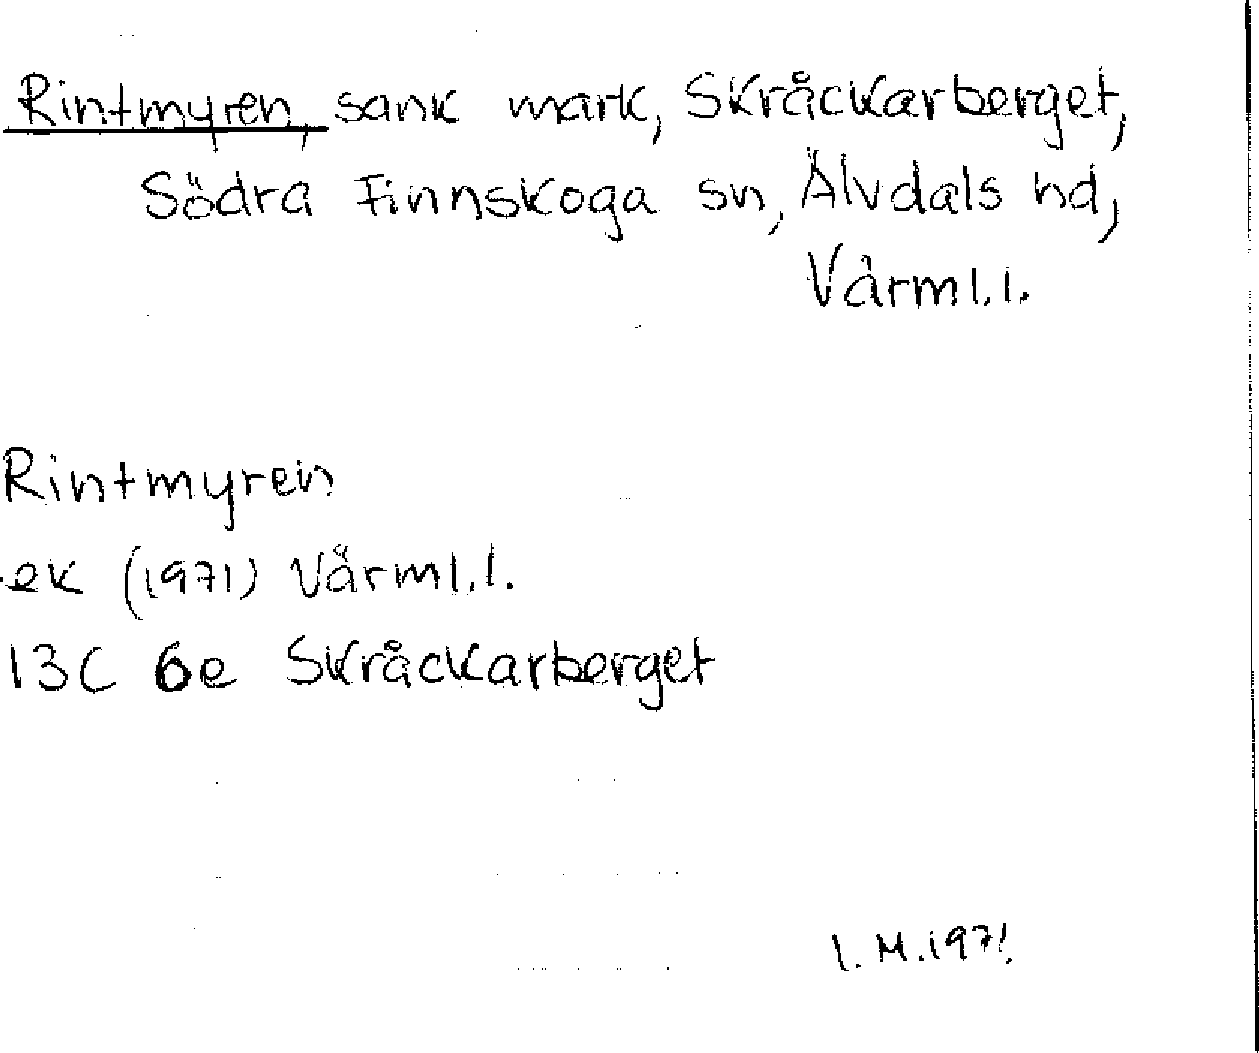 Rintmyren, sank mark, Skråckarberget,
Södra Finnskoga sn, Älvdals hd,
Värml.l.
Rintmyren
ek (1971) Värml.l.
13C 6e Skråckarberget
I.M.1971.